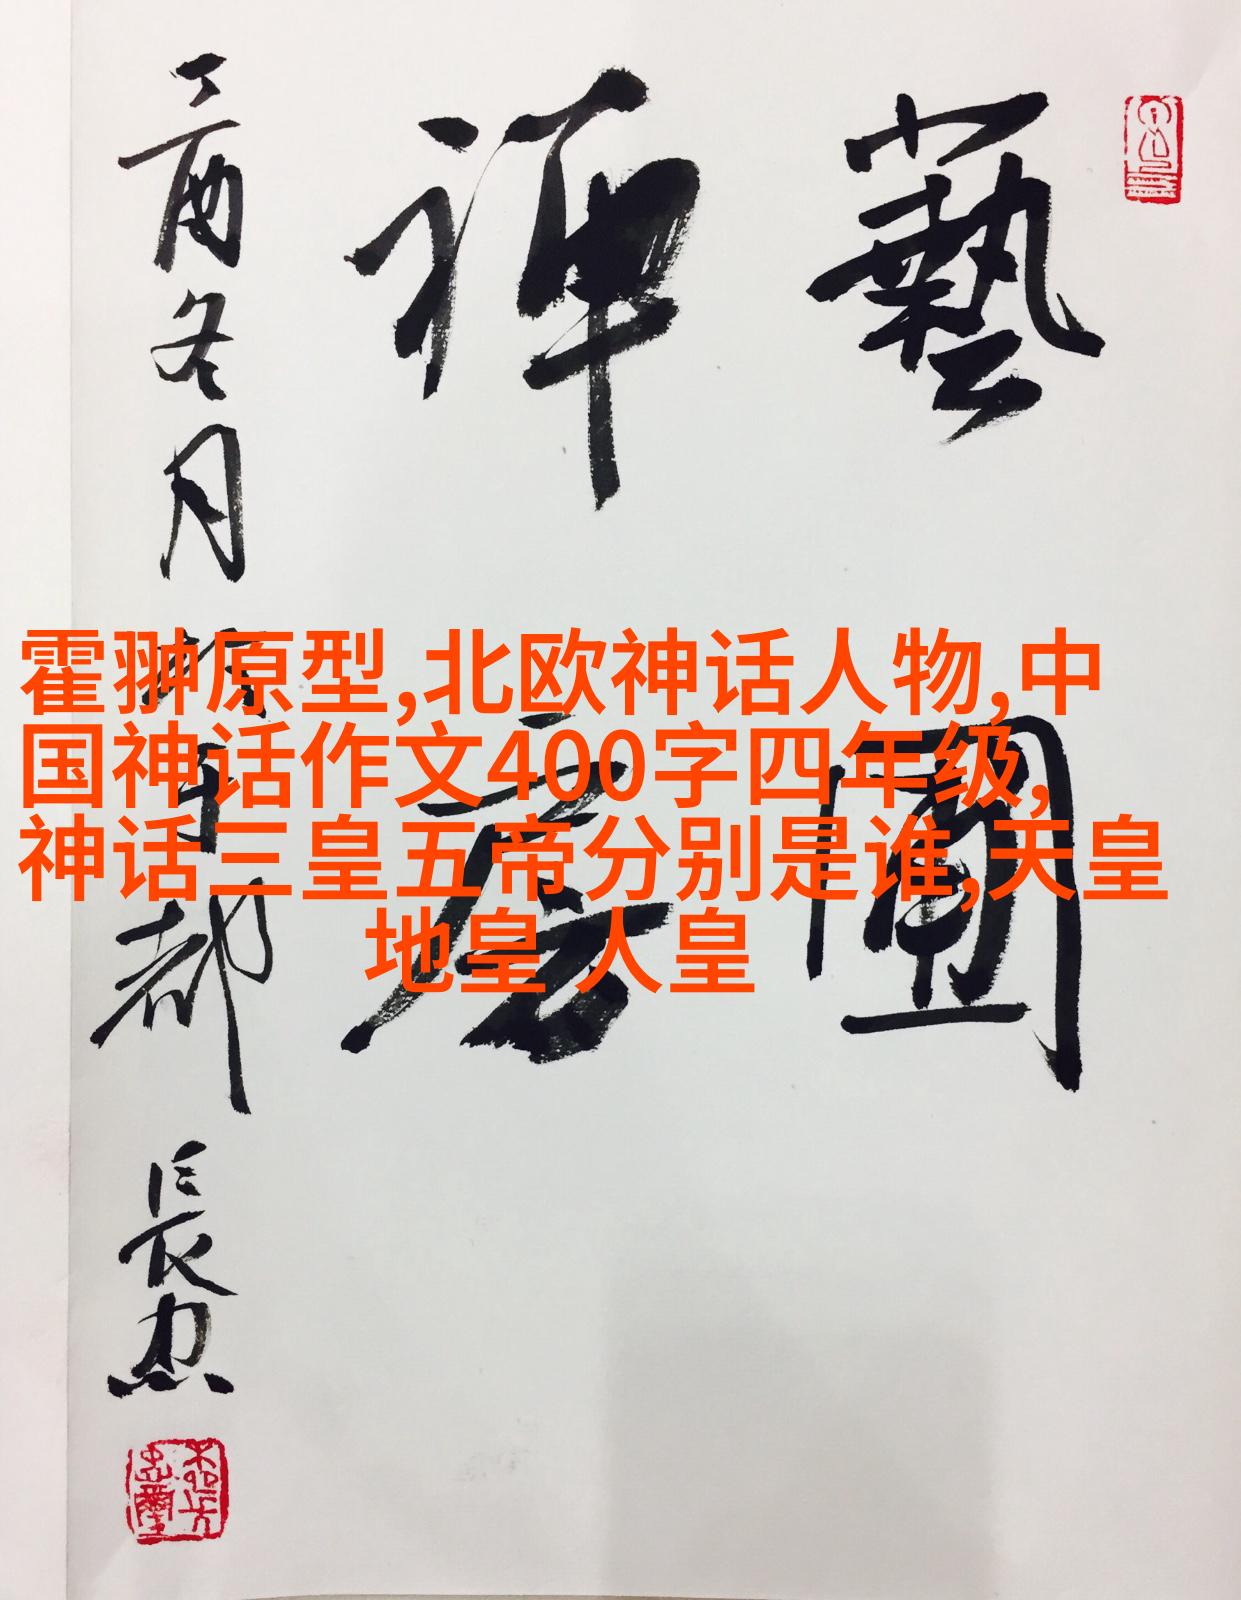 霍翀原型,北欧神话人物,中
国神话作文400字四年级,
神话三皇五帝分别是谁,天皇
地皇 人皇
藝圃
禅房
丁酉冬月
成都
長忠